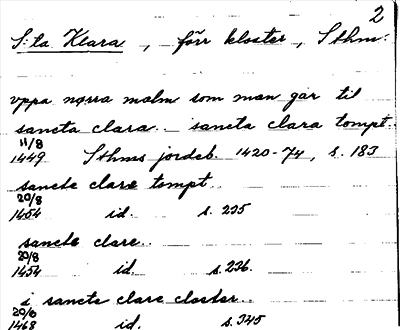 2
S:ta Klara, förr kloster, Sthm.
vppa nørra malm som man gar til
sancta clara.. sancta clara tompt..
11/8
1449 Sthms jordeb. 1420-74, s. 183
sancte clare tompt..
20/8
1454 id. s. 235
sancte clare..
20/8
1454 id. s. 236.
i sancte clare closter..
20/6
1468 id. s. 345